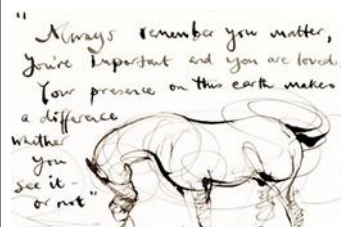 "Always remember you matter,
you're important and you are loved,
Your presence on this earth makes
a difference
whether
you
see it -
or not"